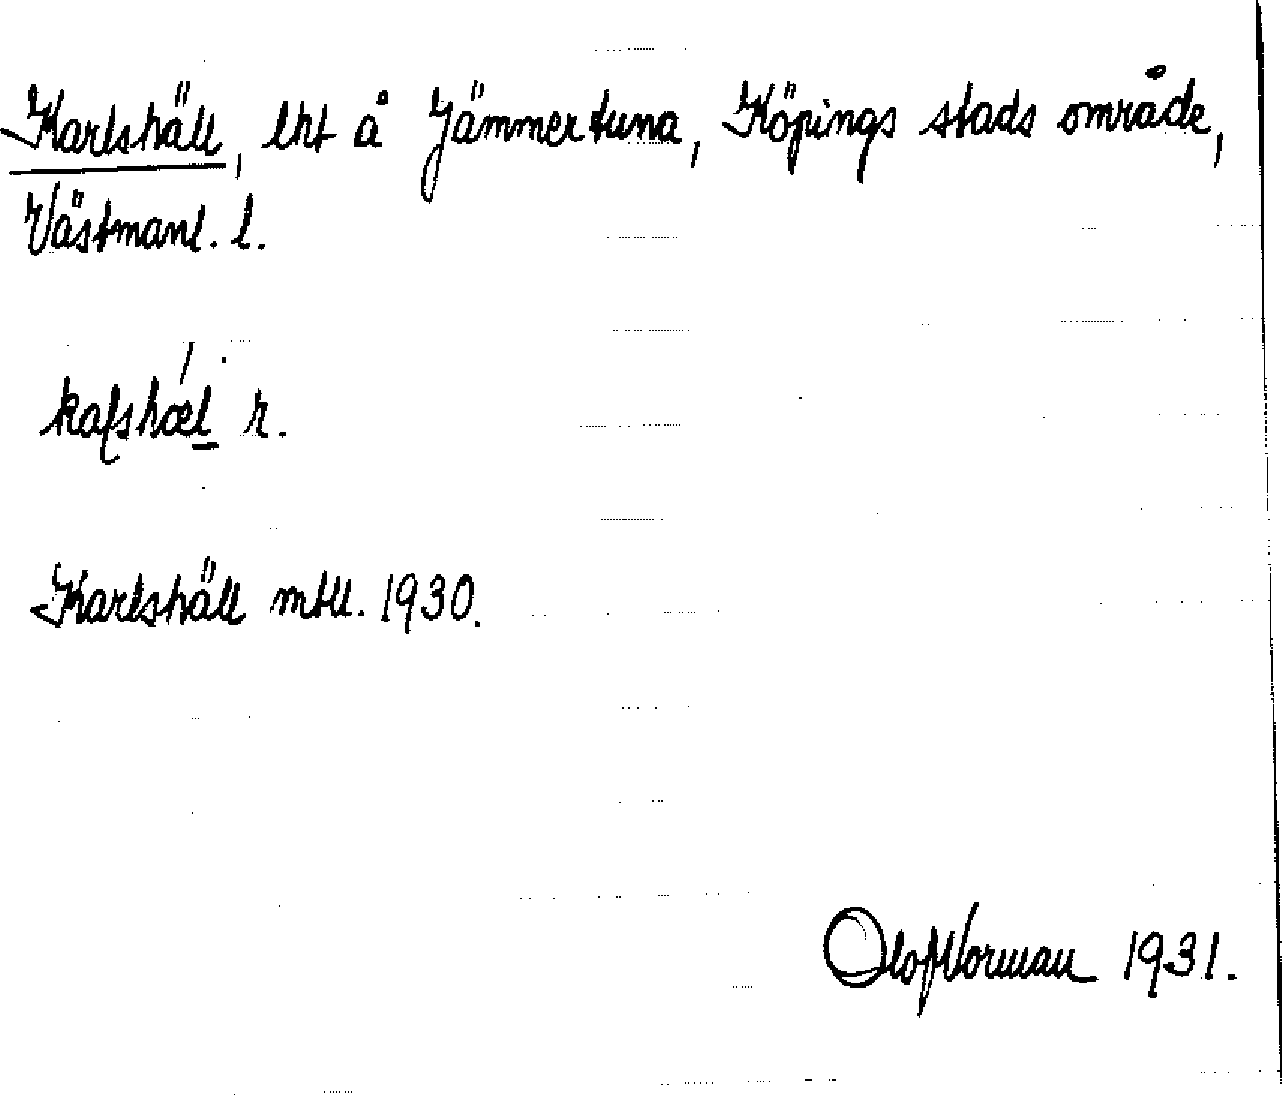 Karlshäll, lht å Jämmertuna, Köpings stads område,
Västmanl. l.
kaʃshæl r.
Karlshäll mtll. 1930.
Olof Norman 1931.